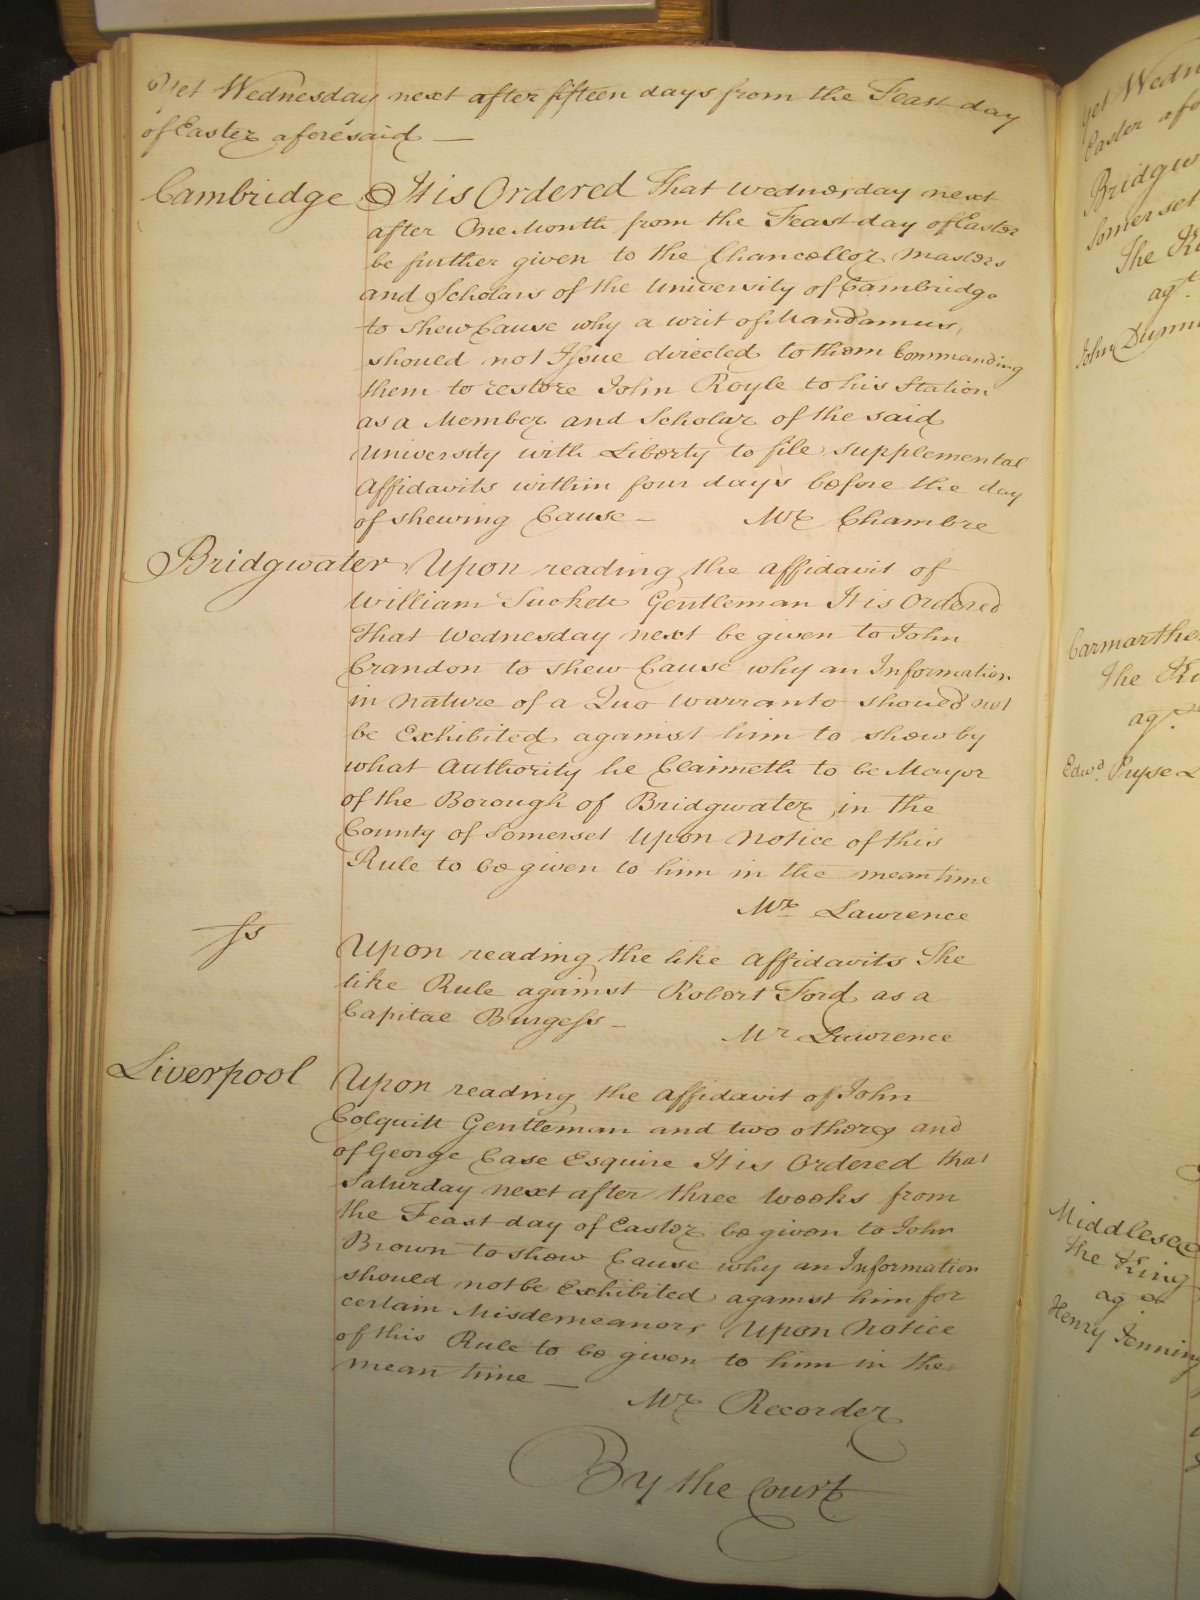 Yet Wednesday next after fifteen days from the Feast day
of Easter aforesaid —
Cambridge It is Ordered That Wednesday next
after One Month from the Feast day of Easter
be further given to the Chancellor Masters
and Scholars of the University of Cambridge
to shew Cause why a writ of Mandamus
should not Issue directed to them Commanding
them to restore John Royle to his Station
as a Member and Scholar of the said
University with Liberty to file supplemental
Affidavits within four days before the day
of shewing Cause — Mr Chambre
Bridgwater Upon reading the affidavit of
William Suckett Gentleman It is Ordered
That Wednesday next be given to John
Crandon to shew Cause why an Information
in Nature of a Quo Warranto should not
be Exhibited against him to shew by
what Authority he Claimeth to be Mayor
of the Borough of Bridgwater in the
County of Somerset Upon Notice of this
Rule to be given to him in the mean time
Mr Lawrence
ss Upon reading the like Affidavits The
like Rule against Robert Ford as a
Capital Burgess — Mr Lawrence
Liverpool Upon reading the Affidavit of John
Colquitt Gentleman and two others and
of George Case Esquire It is Ordered that
Saturday next after three weeks from
the Feast day of Easter be given to John
Brown to shew Cause why an Information
should not be Exhibited against him for
certain Misdemeanors Upon Notice
of this Rule to be given to him in the
mean time — Mr Recorder
By the Court
yet Wedn
Easter afo
Bridgw
Somerset
The Ki
agt.
John Dunni
Carmarthe
The Ki
agt.
Edwd. Pryse L
Middlesex
the King
agt
Henry Jenning